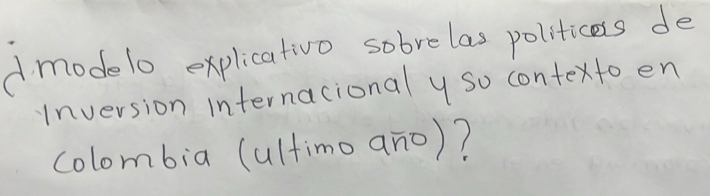 ¿modelo explicativo sobre las politicas de
inversion internacional y su contexto en
colombia (ultimo año)?